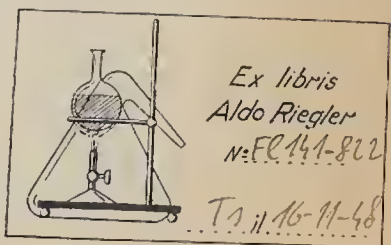 Ex libris
Aldo Riegler
N: FC 141-822
Ts il 16-11-48